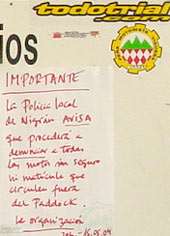 todotrial
.com
ios
IMPORTANTE
La Policía local
de Nigrán AVISA
que procederá a
denunciar a todas
las motos sin seguro
ni matrícula que
circulen fuera
del Paddock.
La organización
16.05.04